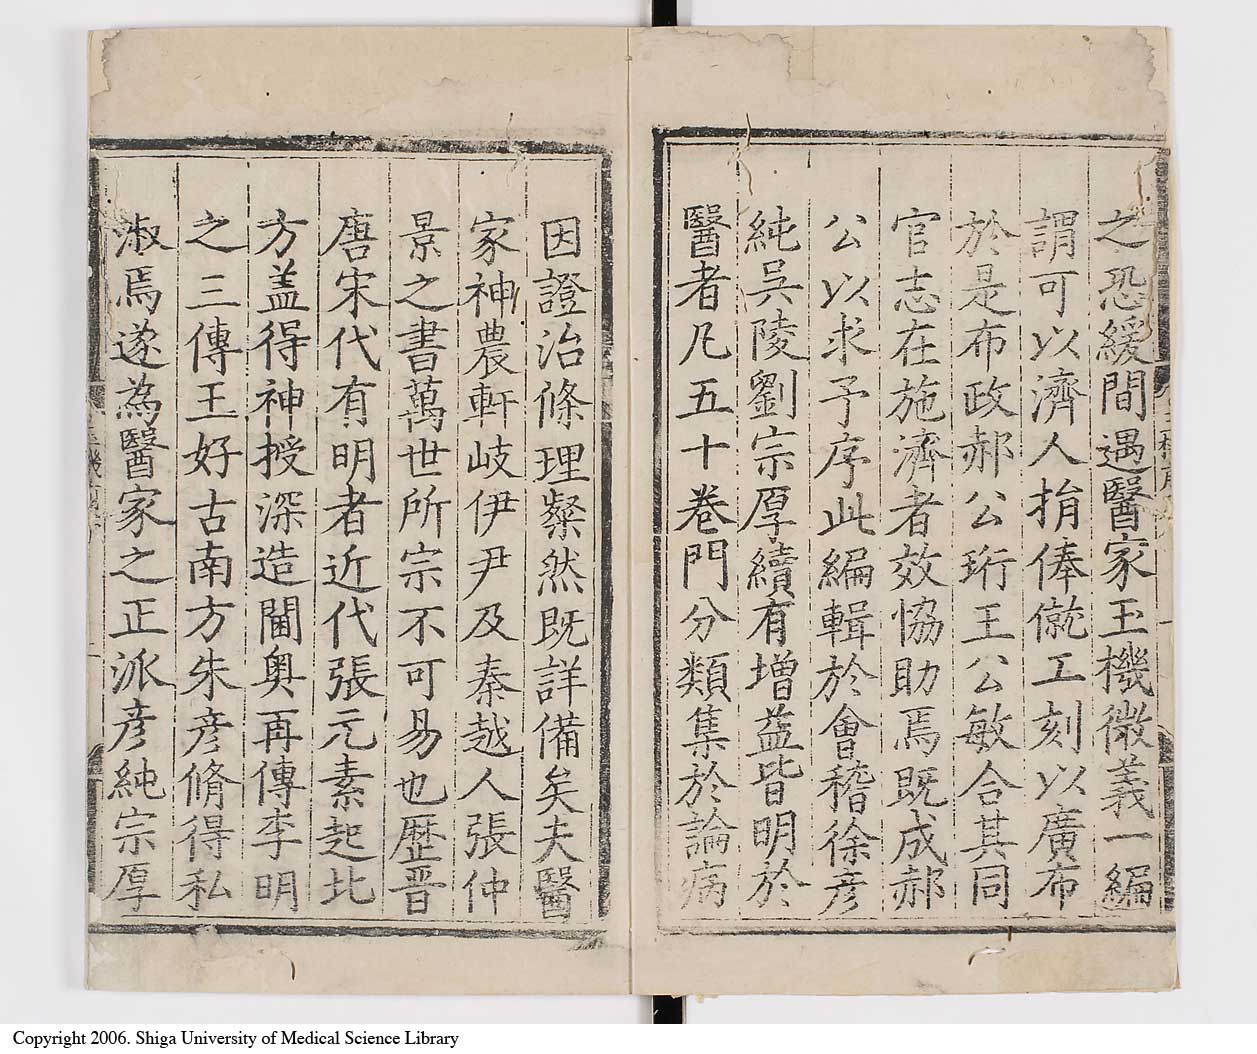 之恐緩間遇醫家玉機微義一編
謂可以濟人捐俸僦工刻以廣布
於是布政郝公珩王公敏合其同
官志在施濟者效恊助焉既成郝
公以求予序此編輯於會稽徐彦
純吳陵劉宗厚續有增益皆明於
醫者凡五十卷門分類集於論病
因證治條理粲然既詳備矣夫醫
家神農軒岐伊尹及秦越人張仲
景之書萬世所宗不可易也歴晋
唐宋代有明者近代張元素起北
方盖得神授深造閫奥再傳李明
之三傳王好古南方朱彦脩得私
淑焉遂為醫家之正派彦純宗厚
Copyright 2006. Shiga University of Medical Science Library